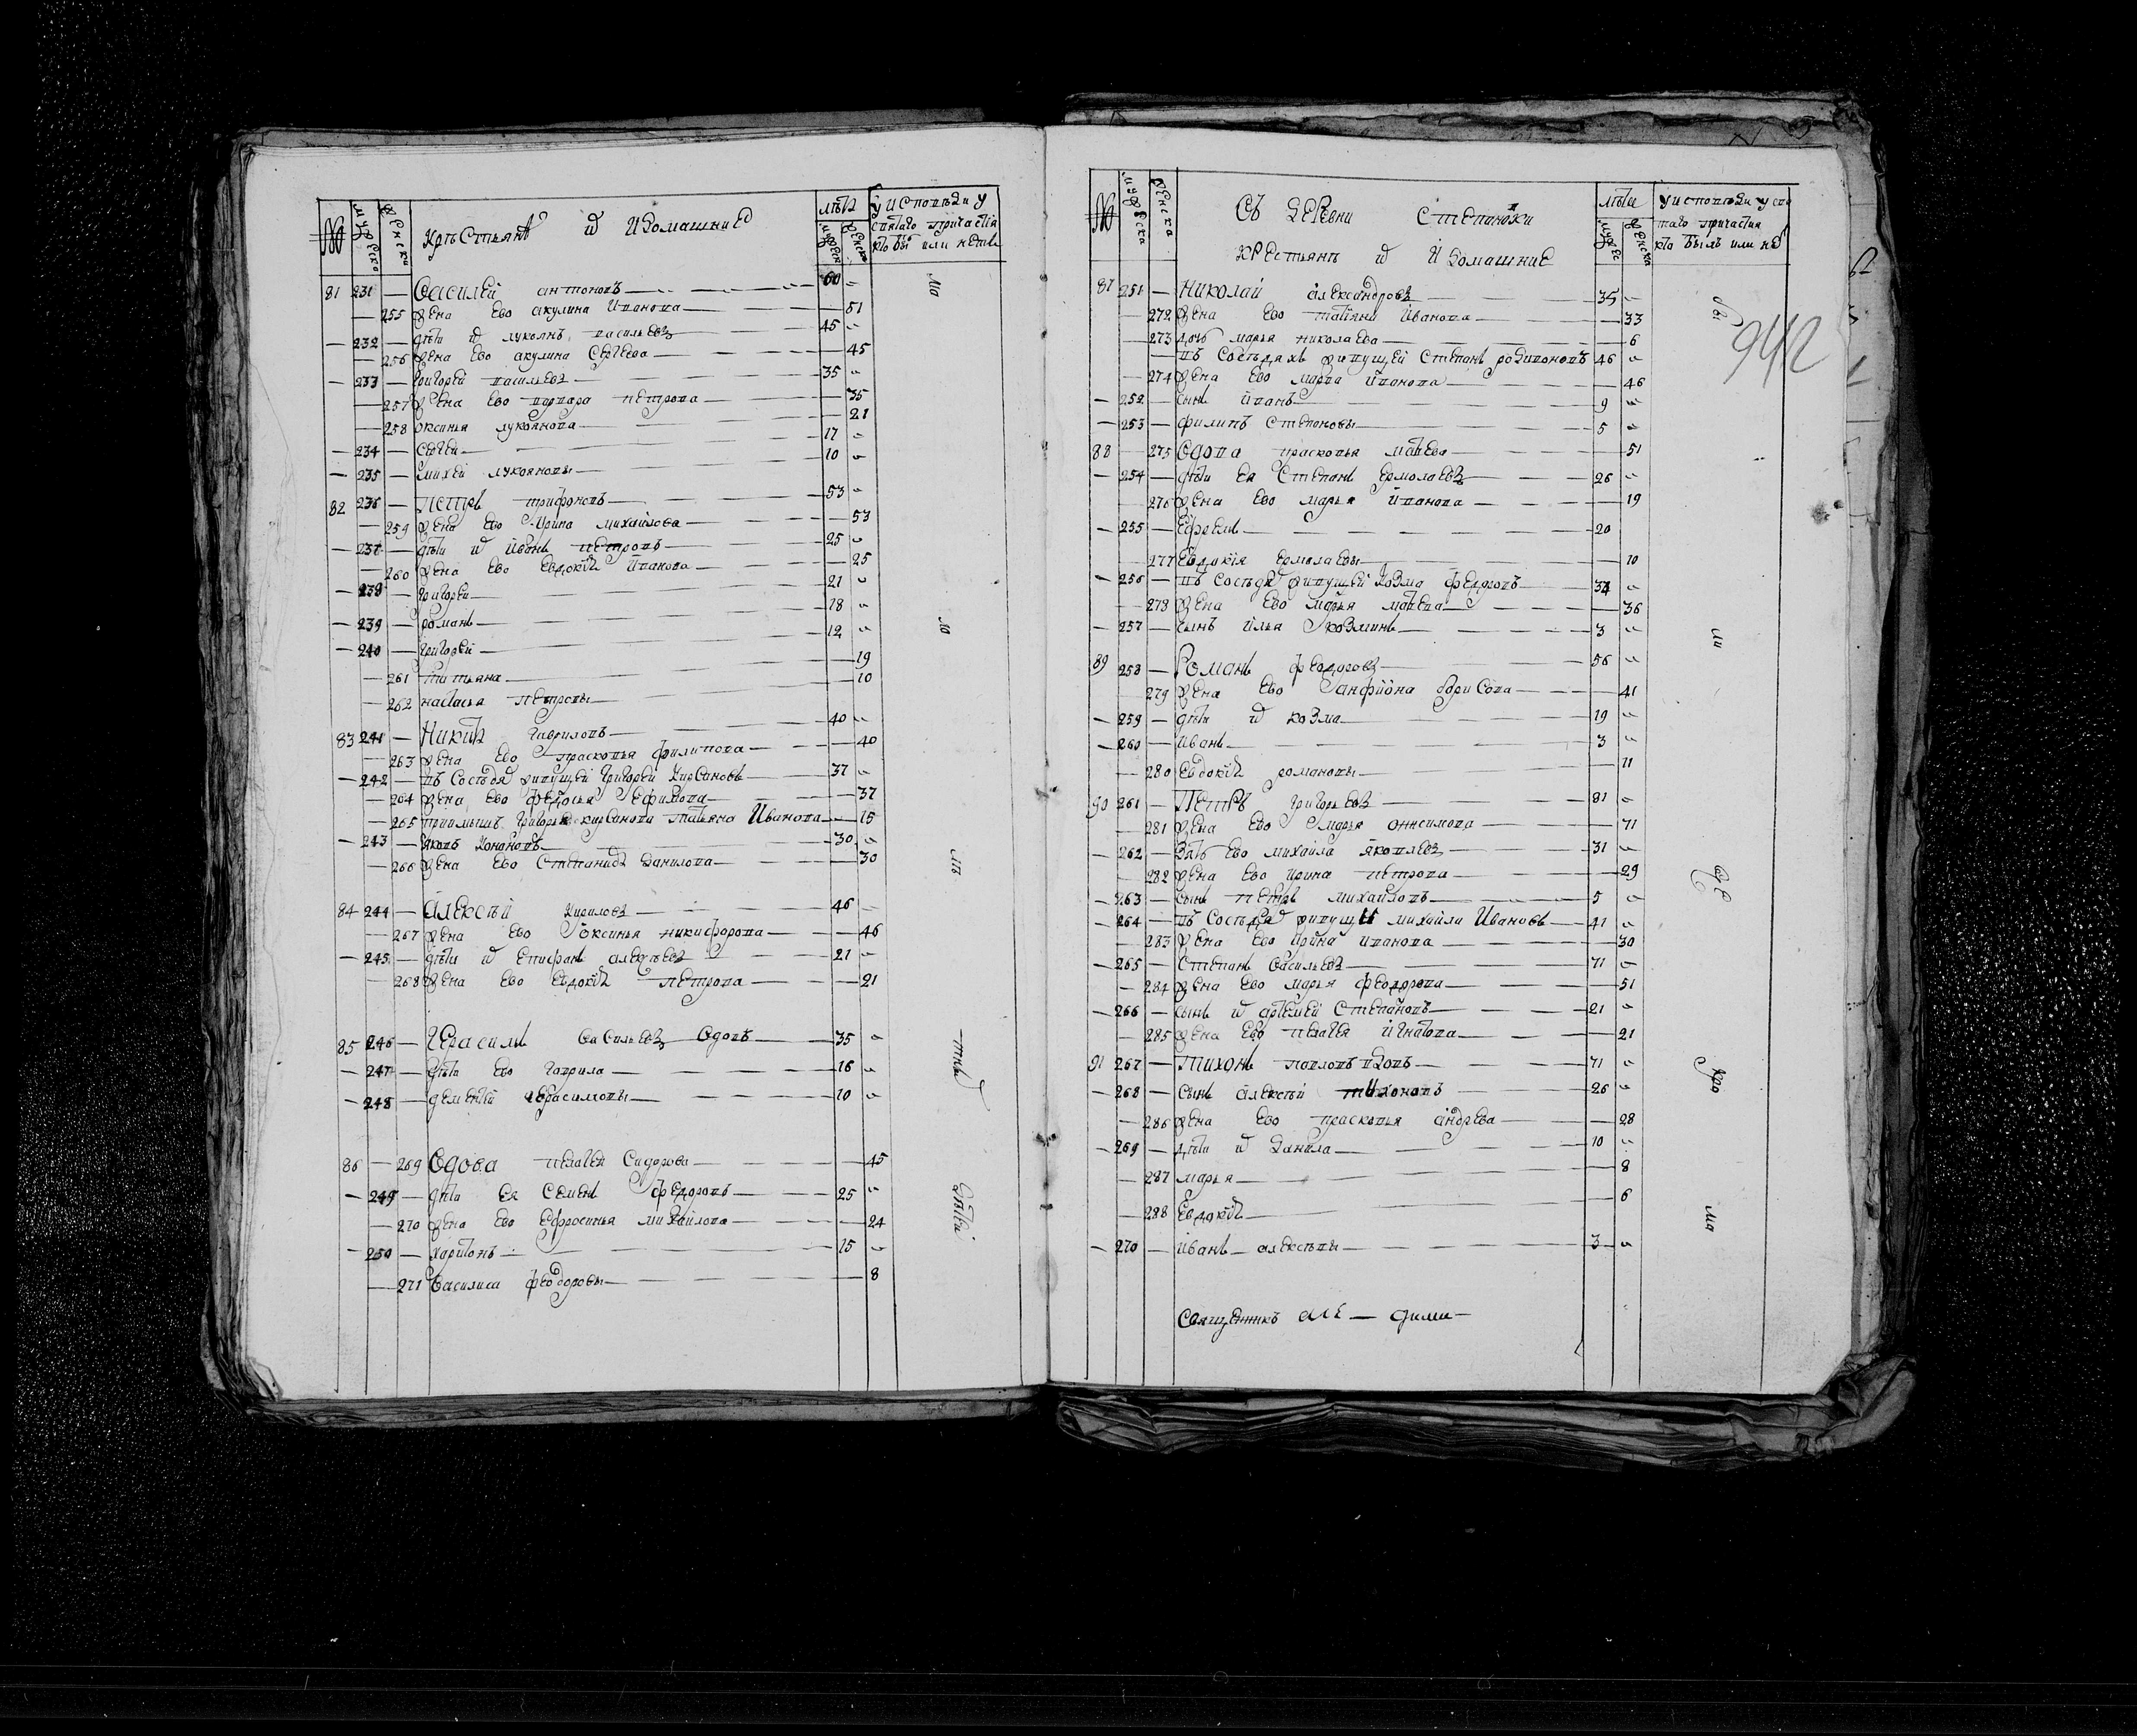 № мужеска женска крѣстьянѣ и и домашниѣ лѣта мужеска женска у исповѣди у святаго причастія кто былъ или нетъ
81 231 — Василей антоновъ 60 „
— 255 жена ево акулина Иванова 51
— 232 — дѣти и лукоянъ васильевъ 45 „
— 256 жена ево акулина Сергеева 45
— 233 — григорей васильевъ 35 „
— 257 жена ево варвара петрова 35
— 258 оксинья лукоянова 21
— 234 — Сергей 17 „
— 235 — михей лукояновы 10 „
82 236 — Петръ трифоновъ 53 „
— 259 жена ево Ирина михайлова 53
— 237 — дѣти и иванъ петровъ 25 „
— 260 жена ево Евдокія Иванова 25
— 238 — григорей 21 „
— 239 — романъ 18 „
— 240 — григорей 12 „
— 261 татьяна 19
— 262 настасья петровы 10
83 241 — Никита гавриловъ 40 „
— 263 жена ево прасковья филипова 40
— 242 — въ Сосѣдя живущей григорей Кирсановъ 37 „
— 264 жена ево федосья Ефимова 37
— 265 приимышъ григорья кирсанова татьяна Иванова 15
— 243 — яковъ Конановъ 30 „
— 266 жена ево Степанида Данилова 30
84 244 — Алексѣй Кириловъ 46 „
— 267 жена ево оксинья никифорова 46
— 245 — дѣти и епифанъ алексѣевъ 21 „
— 268 жена ево Евдокія петрова 21
85 246 — герасимъ Васильевъ вдовъ 35 „
— 247 — дѣти ево гаврила 16 „
— 248 — дементей герасимовы 10 „
86 — 269 вдова пелагея Сидорова 45
— 249 — дѣти ея Семенъ федоровъ 25 „
— 270 жена ево Ефросинья михайлова 24
— 250 — харитонъ 15 „
— 271 василиса феодоровы 8
942
№ мужеска женска Съ деревни Степановки лѣты мужес женска у исповѣди у свя
крестьянъ и и домашние таго причастия кто былъ или нѣ
87 251 — Николай александровъ 35 „
— 272 жена ево татьяна иванова 33
— 273 дочь марья николаева 6
— въ Сосѣдяхъ живущей Степанъ родивоновъ 46 „
— 274 жена ево марфа иванова 46
— 252 — сынъ иванъ 9 „
— 253 — филипъ Степановы 5 „
88 — 275 вдова прасковья матвева 51
— 254 — дѣти ея Степанъ Ермолаевъ 26 „
— 276 жена ево марья иванова 19
— 255 — Ефремъ 20
— 277 Евдокія ермолаевы 10
— 256 — въ Сосѣдя живущей Козма федоровъ 34 „
— 278 жена ево марья матвева 36
— 257 — сынъ илья козминъ 3 „
89 258 — Романъ феодоровъ 56 „
— 279 жена ево анфиона борисова 41
— 259 — дѣти и козма 19 „
— 260 — иванъ 3 „
— 280 евдокія романовы 11
90 261 — Петръ григорьевъ 81 „
— 281 жена ево марья онисимова 71
— 262 — зять ево михайла яковлевъ 31 „
— 282 жена ево ирина петрова 29
— 263 — сынъ петръ михайловъ 5 „
— 264 — въ Сосѣдя живущи михайла Ивановъ 41 „
— 283 жена ево ирина иванова 30
— 265 — степанъ васильевъ 71 „
— 284 жена ево марья феодорова 51
— 266 — сынъ и артемей Степановъ 21 „
— 285 жена ево пелагея игнатова 21
91 267 — Тихонъ павловъ вдовъ 71 „
— 268 — сынъ алексѣй тихоновъ 26 „
— 286 жена ево прасковья андрева 28
— 269 — дѣти и данила 10 „
— 287 марья 8
— 288 Евдокія 6
— 270 — иванъ алексѣевы 3 „
Священникъ але — дими —